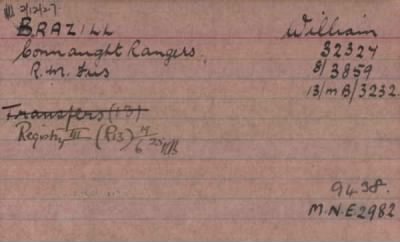 2/12/27.
BRAZILL William
Connaught Rangers. 32327
R.M. Fus 8/3859
13/MB/3232.
Transfers (13)
Registry III (R13)
9438.
M.N.E.2982